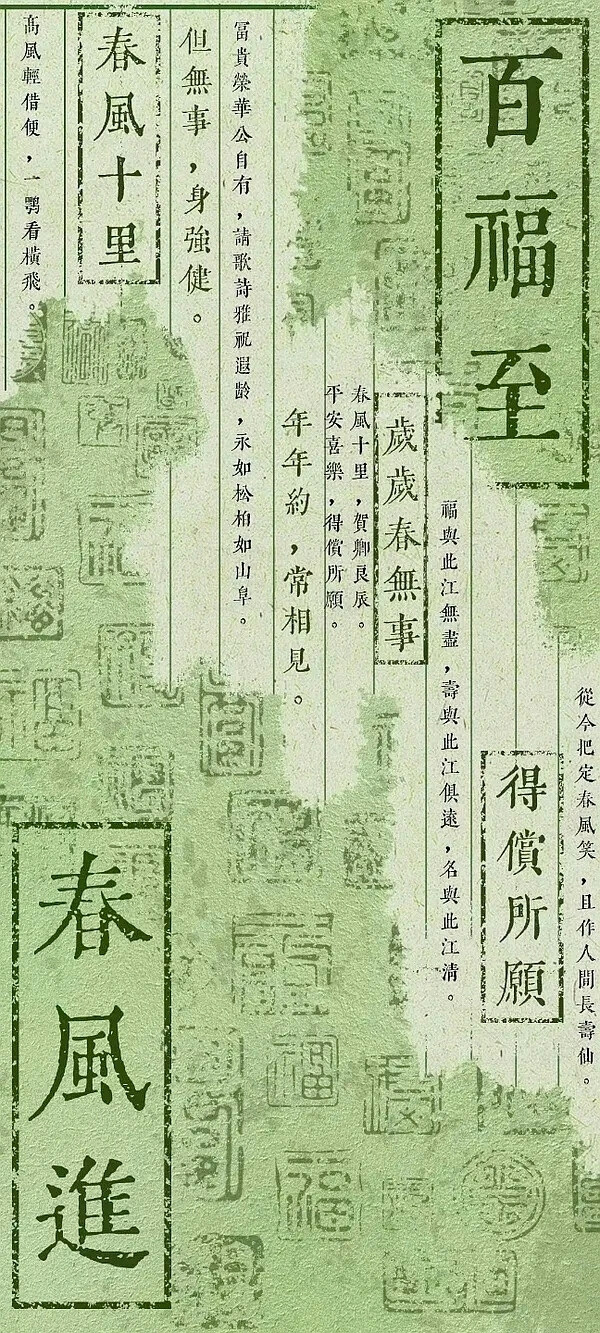 百福至
從今把定春風笑，且作人間長壽仙。
得償所願
福與此江無盡，壽與此江俱遠，名與此江清。
歲歲春無事
春風十里，賀卿良辰。
平安喜樂，得償所願。
年年約，常相見。
富貴榮華公自有，請歌詩雅祝遐齡，永如松柏如山阜。
但無事，身強健。
春風十里
高風輕借便，一鶚看橫飛。
春風進
福
福